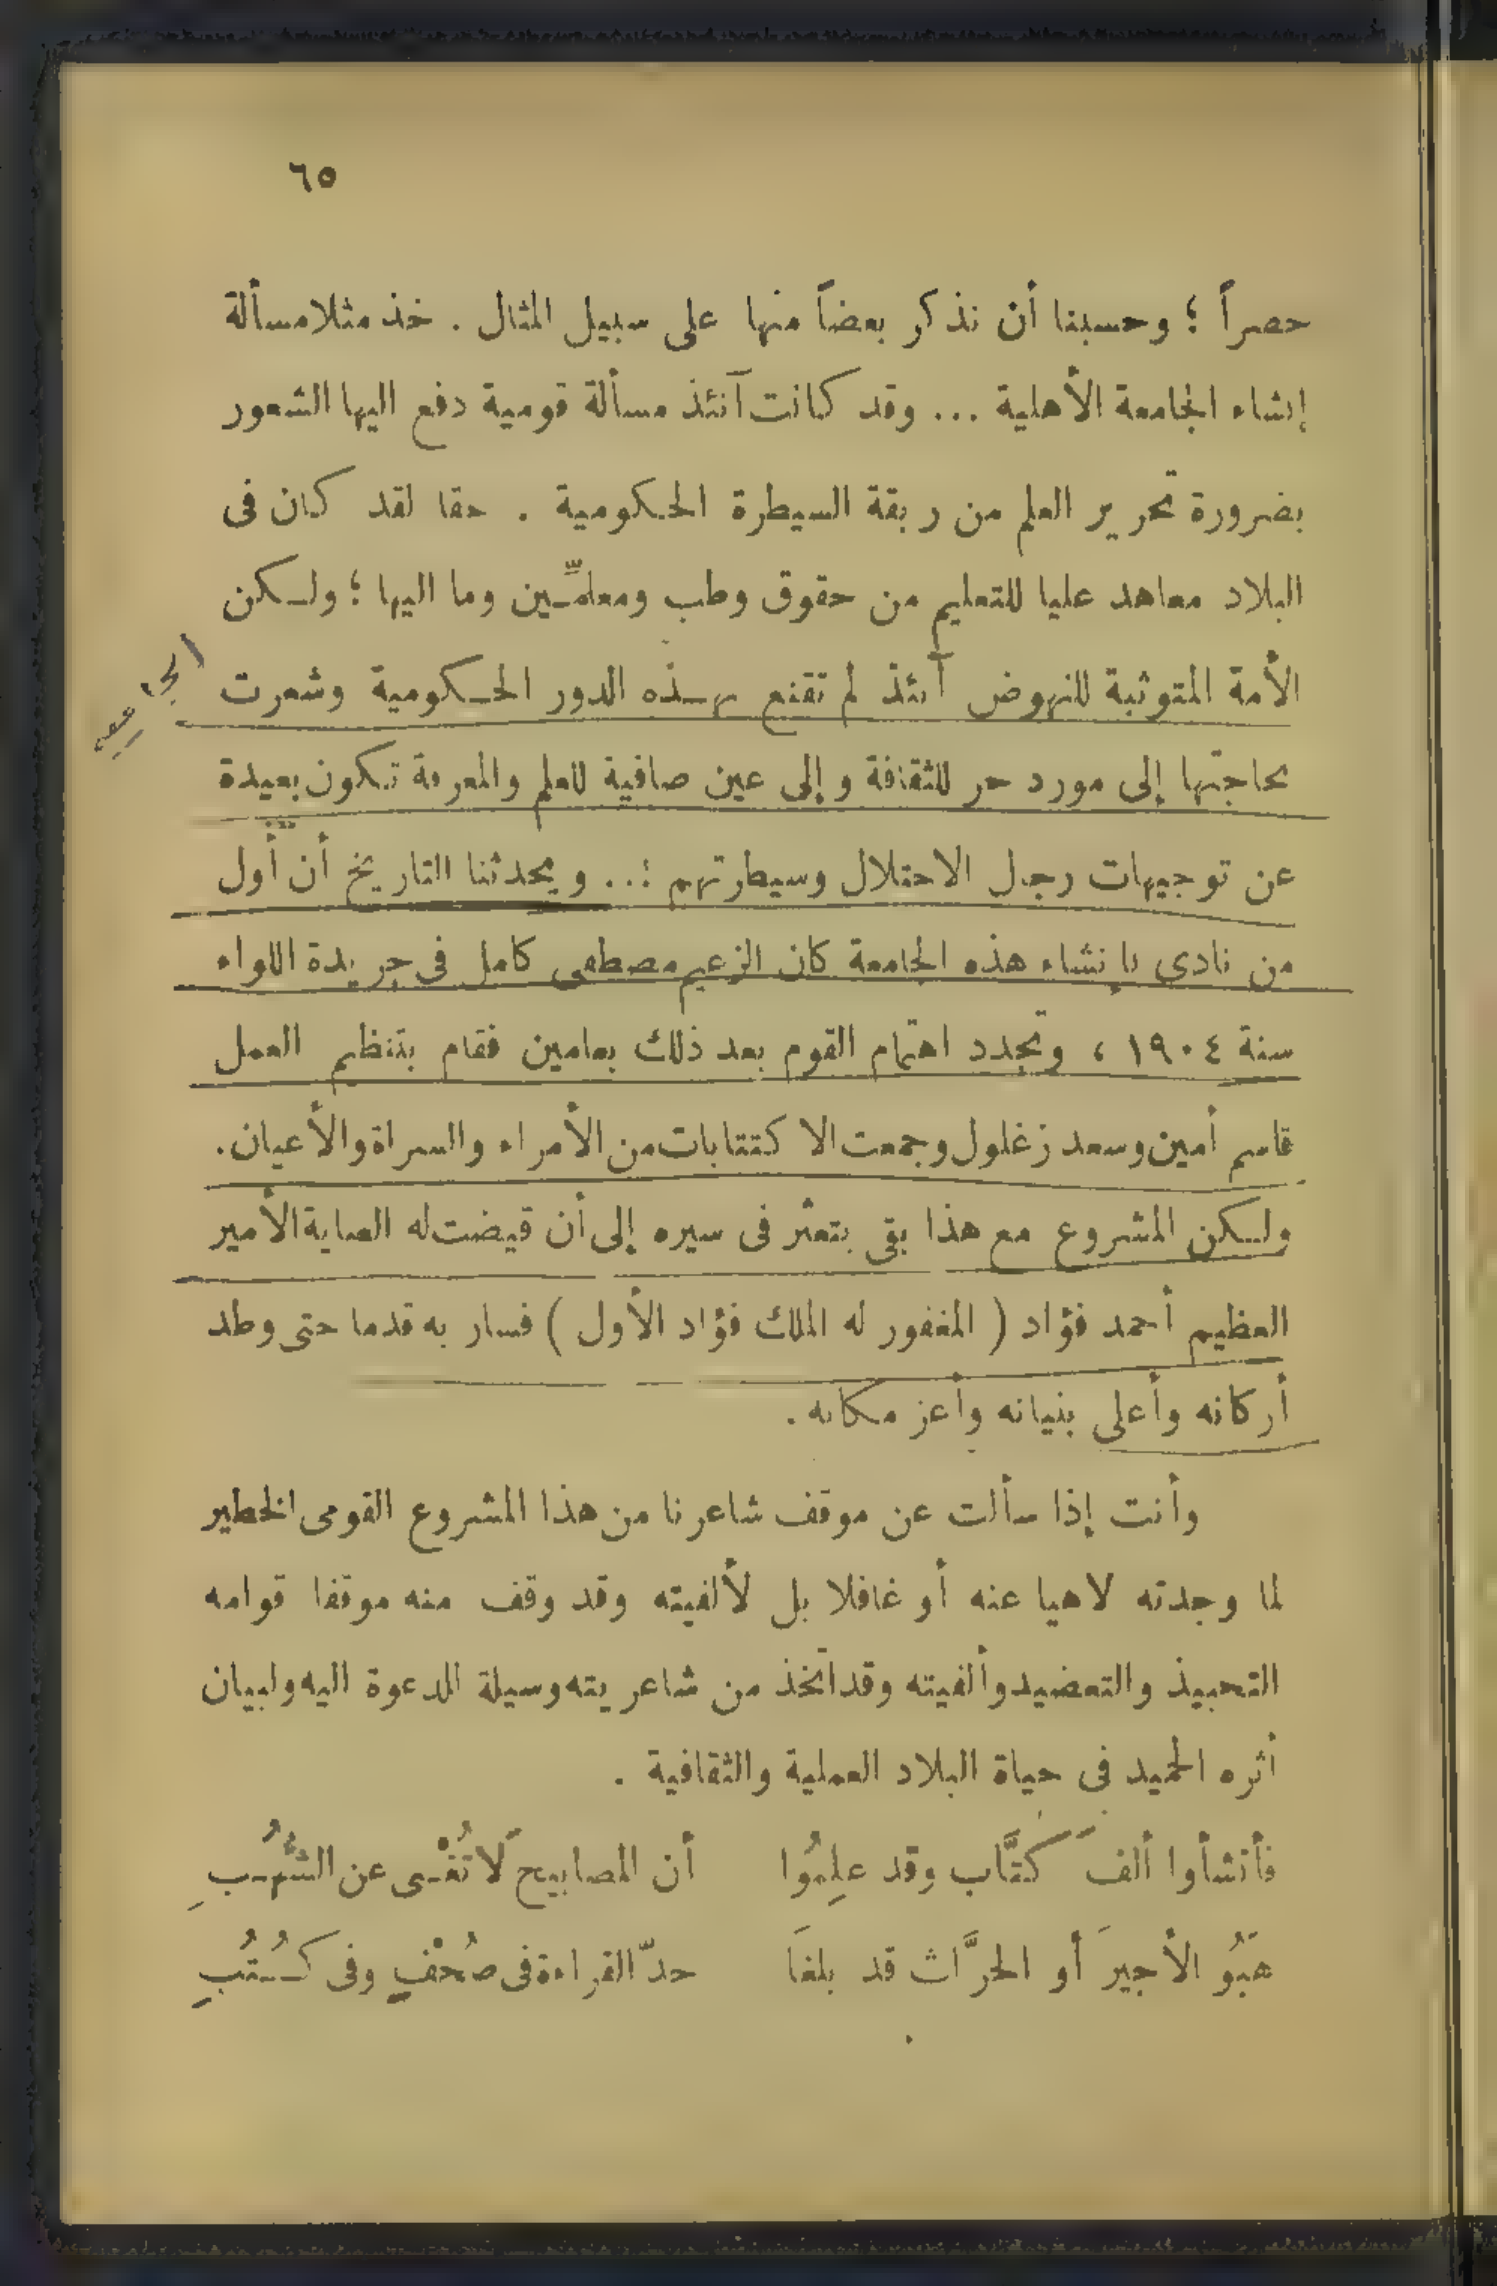 ٦٥
حصراً ؛ وحسبنا أن نذكر بعضاً منها على سبيل المثال . خذ مثلا مسألة
إنشاء الجامعة الأهلية ... وقد كانت آنئذ مسألة قومية دفع اليها الشعور
بضرورة تحرير العلم من ربقة السيطرة الحكومية . حقا لقد كان فى
البلاد معاهد عليا للتعليم من حقوق وطب ومعلمّين وما اليها ؛ ولكن
الأمة المتوثبة للنهوض آنئذ لم تقنع بهذه الدور الحكومية وشعرت
الجامعه
بحاجتها إلى مورد حر للثقافة وإلى عين صافية للعلم والمعرفة تكون بعيدة
عن توجيهات رجال الاحتلال وسيطرتهم ... ويحدثنا التاريخ أن أول
من نادى بإنشاء هذه الجامعة كان الزعيم مصطفى كامل فى جريدة اللواء
سنة ١٩٠٤ ، وتجدد اهتمام القوم بعد ذلك بعامين فقام بتنظيم العمل
قاسم أمين وسعد زغلول وجمعت الاكتتابات من الأمراء والسراة والأعيان .
ولكن المشروع مع هذا بقى يتعثر فى سيره إلى أن قيضت له العناية الأمير
العظيم أحمد فؤاد ( المغفور له الملك فؤاد الأول ) فسار به قدما حتى وطد
أركانه وأعلى بنيانه وأعز مكانه .
وأنت إذا سألت عن موقف شاعرنا من هذا المشروع القومى الخطير
لما وجدته لاهيا عنه أو غافلا بل لألفيته وقد وقف منه موقفا قوامه
التحبيذ والتعضيد وألفيته وقد اتخذ من شاعريته وسيلة للدعوة اليه ولبيان
أثره الحميد فى حياة البلاد العملية والثقافية .
فأنشأوا ألفَ كُتَّاب وقد علِمُوا أن المصابيح لَا تُغْنى عن الشُّهُبِ
هَبُو الأجيرَ أو الحرَّاث قد بلغَا حدّ القراءة فى صُحْفٍ وفى كُتُبِ